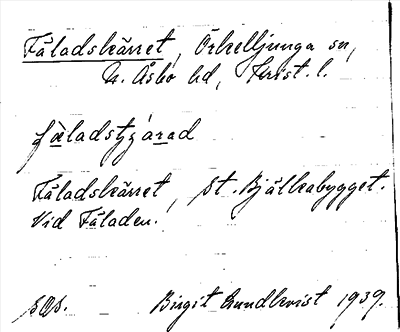 Fäladskärret, Örkelljunga sn,
N. Åsbo hd, Krist. l.
Fäladskärret, st. Bjälkabygget.
Vid Fäladen.
Birgit Lundkvist 1939.